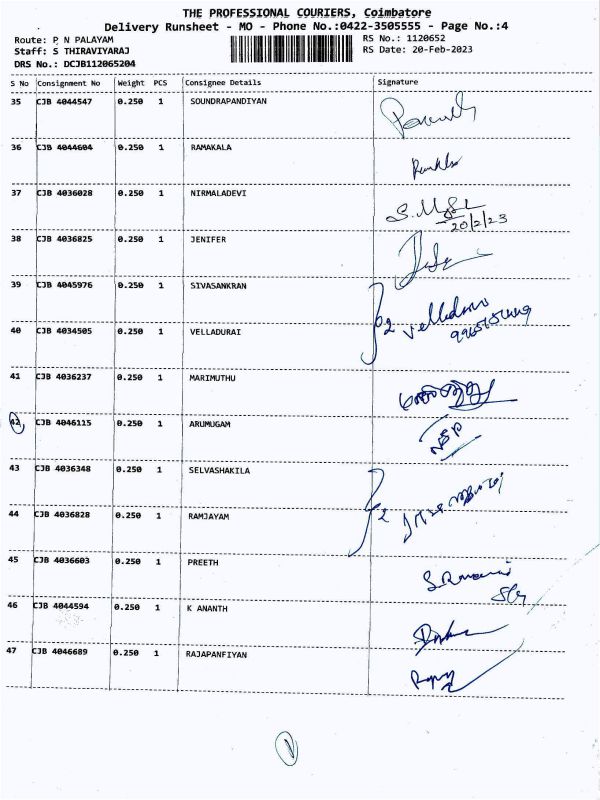 THE PROFESSIONAL COURIERS, Coimbatore
Delivery Runsheet - MO - Phone No.:0422-3505555 - Page No.:4
Route: P N PALAYAM
RS No.: 1120652
Staff: S THIRAVIYARAJ
RS Date: 20-Feb-2023
DRS No.: DCJB112065204
S No Consignment No Weight PCS Consignee Details Signature
35 CJB 4044547 0.250 1 SOUNDRAPANDIYAN
36 CJB 4044604 0.250 1 RAMAKALA
37 CJB 4036028 0.250 1 NIRMALADEVI
20/2/23
38 CJB 4036825 0.250 1 JENIFER
39 CJB 4045976 0.250 1 SIVASANKRAN
2
40 CJB 4034505 0.250 1 VELLADURAI
41 CJB 4036237 0.250 1 MARIMUTHU
42 CJB 4046115 0.250 1 ARUMUGAM
43 CJB 4036348 0.250 1 SELVASHAKILA
2
44 CJB 4036828 0.250 1 RAMJAYAM
45 CJB 4036603 0.250 1 PREETH
46 CJB 4044594 0.250 1 K ANANTH
47 CJB 4046689 0.250 1 RAJAPANFIYAN